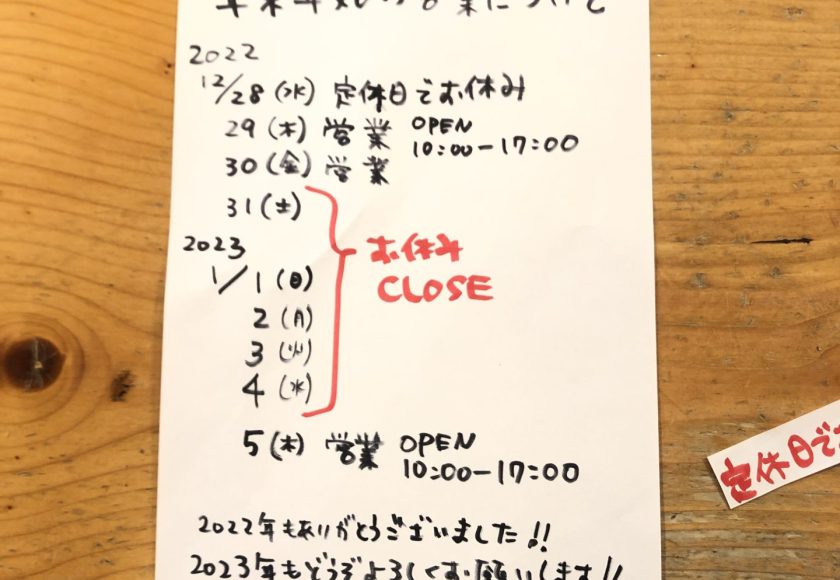 年末年始の営業について
2022
12/28(水) 定休日でお休み
29(木) 営業 OPEN 10:00-17:00
30(金) 営業
31(土)
2023
1/1(日)
2(月)
3(火)
4(水)
お休み
CLOSE
5(木) 営業 OPEN 10:00-17:00
2022年もありがとうございました!!
2023年もどうぞよろしくお願いします!!
定休日で